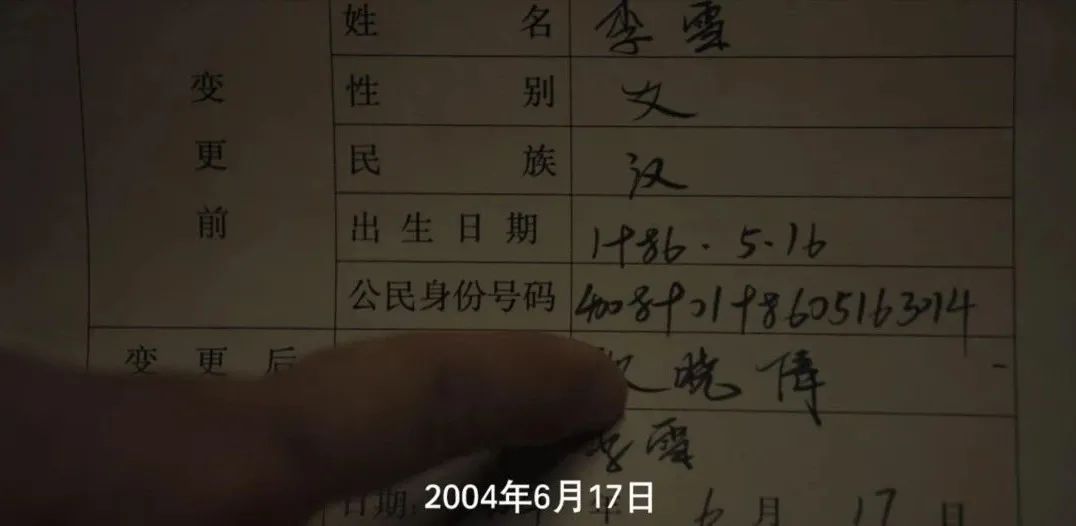 姓名 李雪
变更前
性别 女
民族 汉
出生日期 1986.5.16
公民身份号码 400891198605163014
变更后 晓伟
李雪
日期: 年6月17日
2004年6月17日